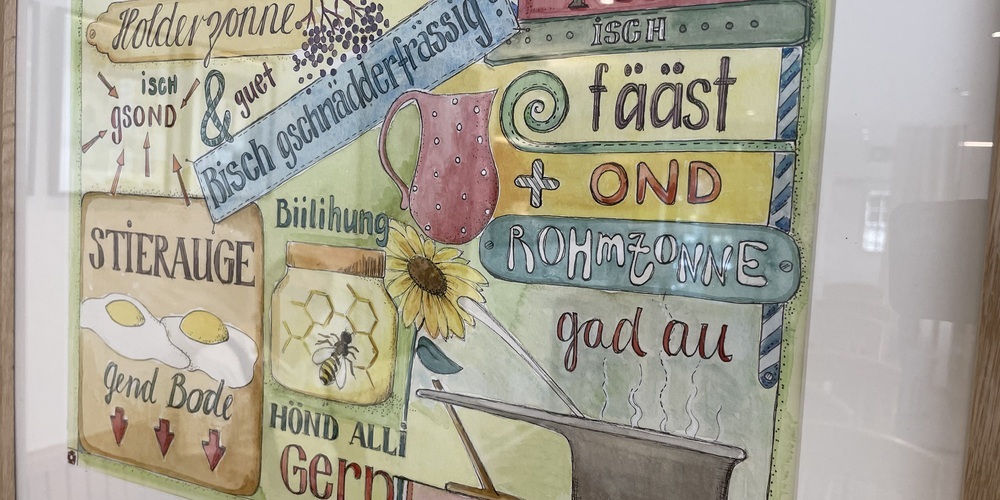 Holderzonne
isch
gsond
&
guet
Bisch gschnädderfrässig
isch
fääst
+ OND
ROHMZONNE
gad au
STiERAUGE
gend Bode
Biilihung
HÖND ALLi
Gern